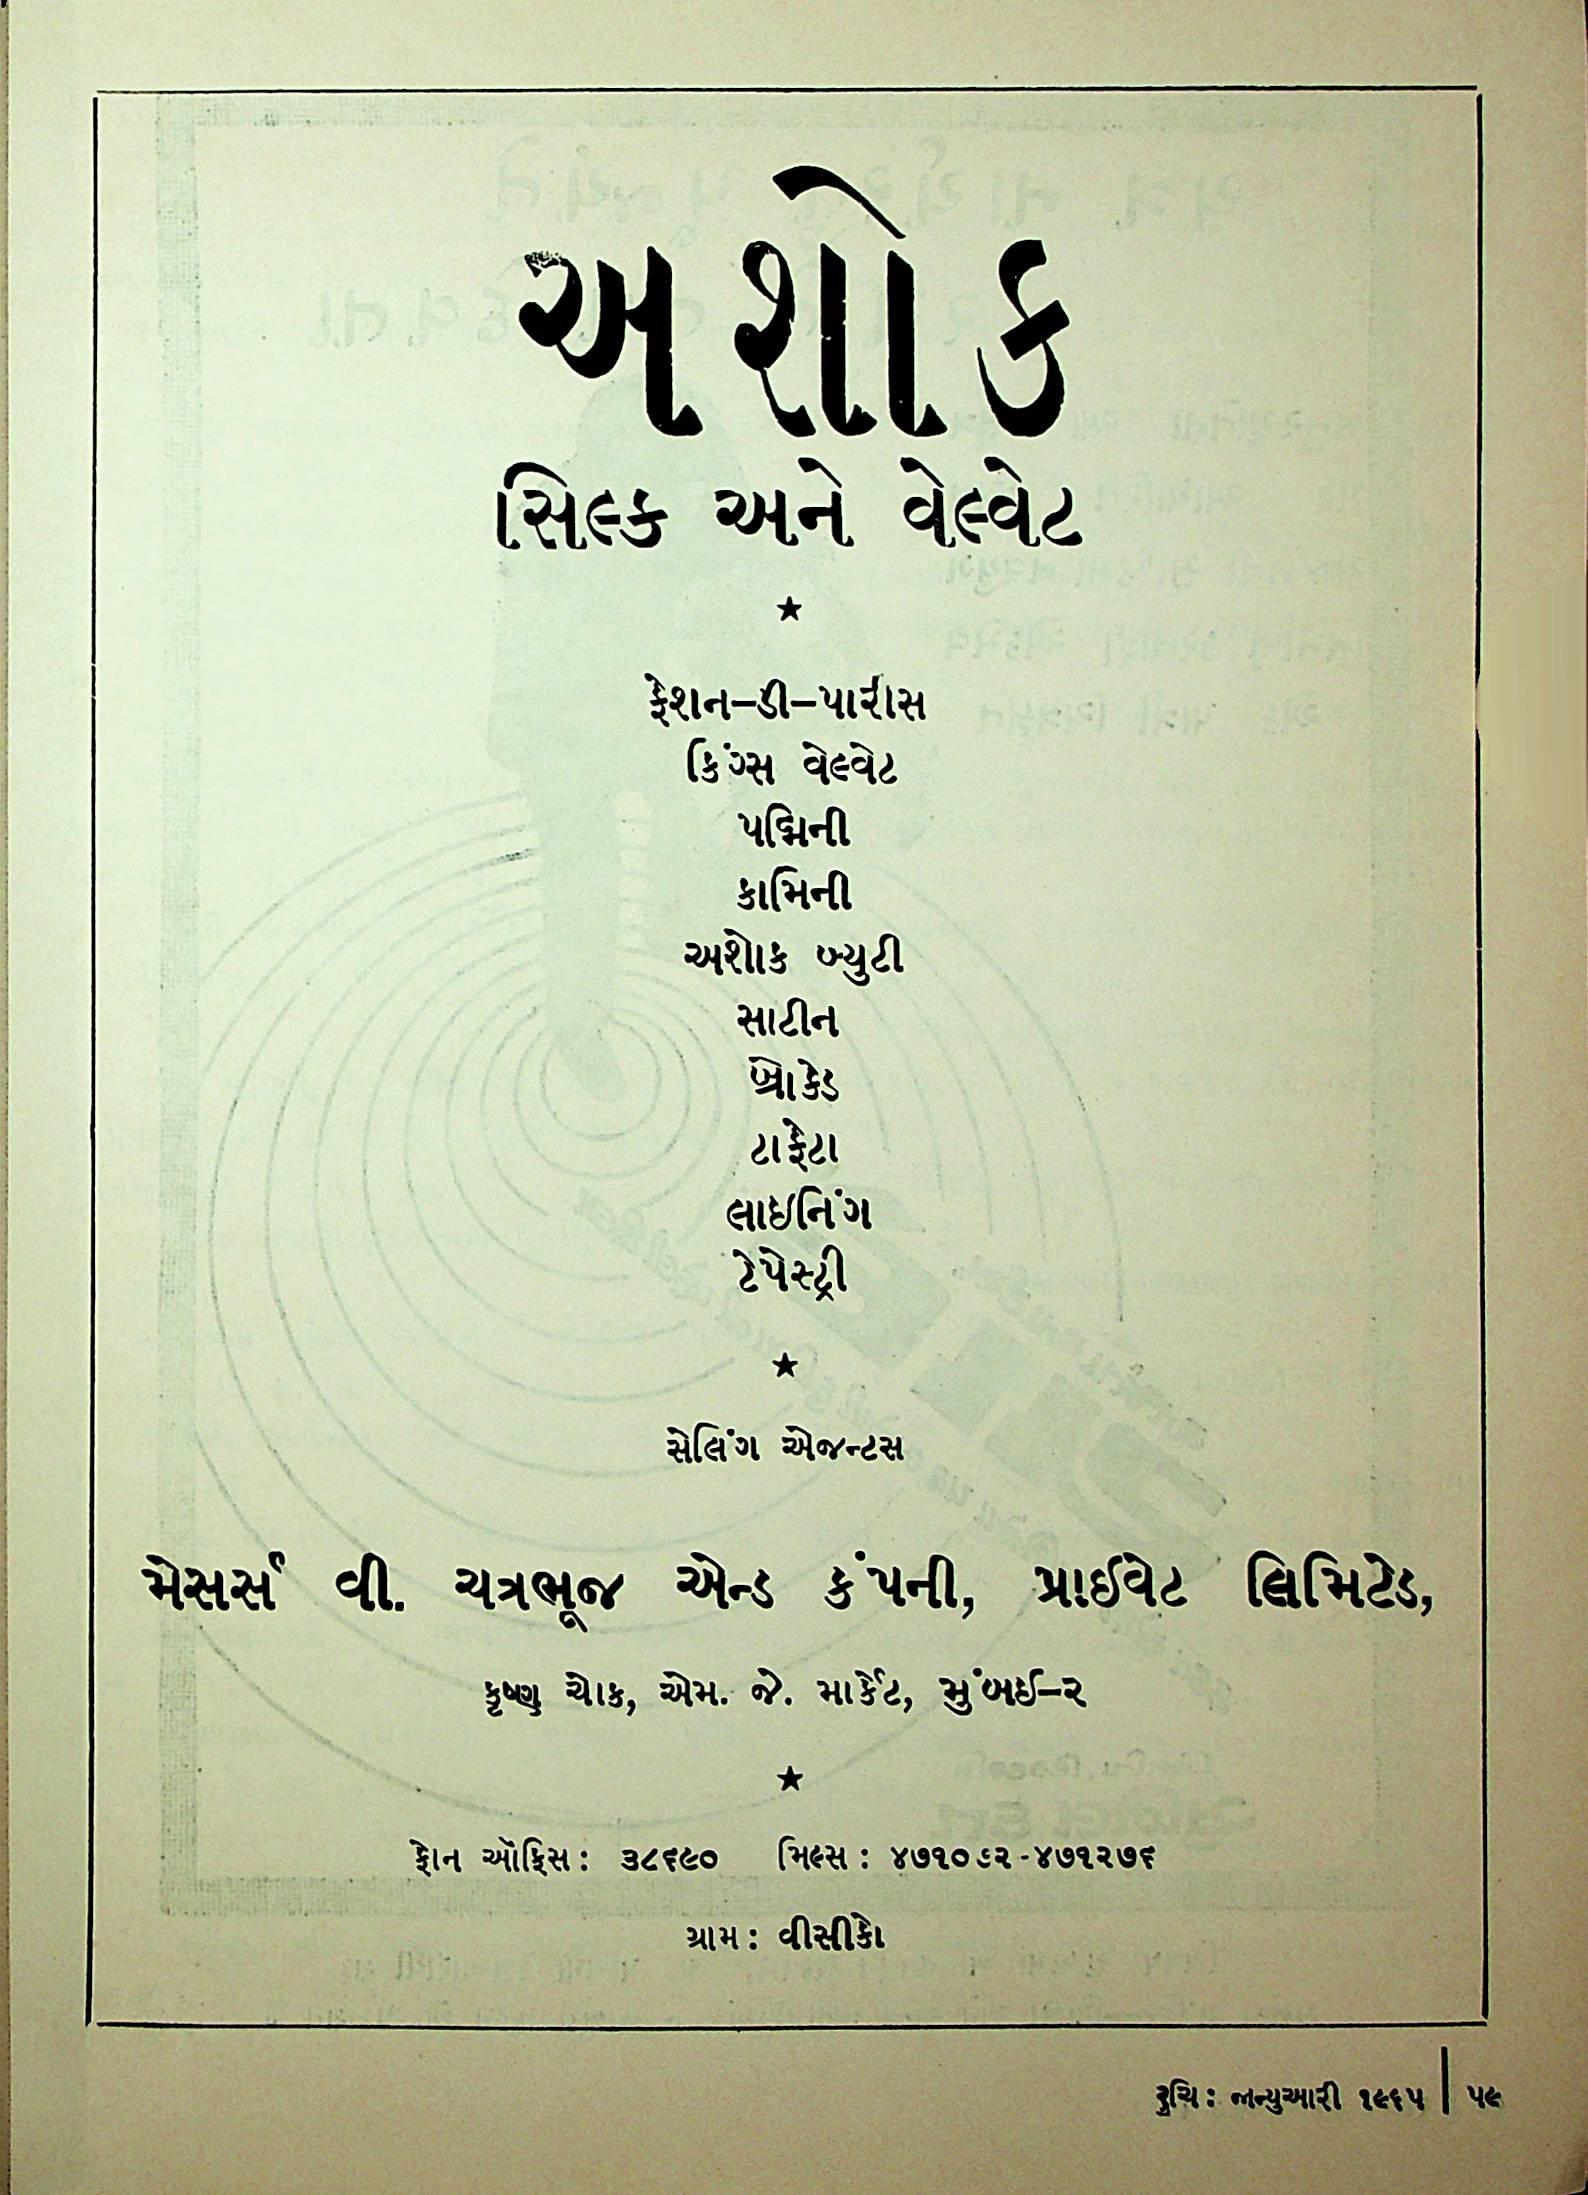 અશોક
સિલ્ક અને વેલ્વેટ
★
ફેશન–ડી–પારીસ
કિંગ્સ વેલ્વેટ
પદ્મિની
કામિની
અશોક બ્યુટી
સાટીન
બ્રોકેડ
ટાફેટા
લાઇનિંગ
ટેપેસ્ટ્રી
★
સેલિંગ એજન્ટસ
મેસર્સ વી. ચત્રભૂજ એન્ડ કંપની, પ્રાઈવેટ લિમિટેડ,
કૃષ્ણ ચોક, એમ. જે. માર્કેટ, મુંબઇ–૨
★
ફોન ઑફિસ: ૩૮૬૯૦ મિલ્સ: ૪૭૧૦૯૨-૪૭૧૨૭૬
ગ્રામ: વીસીકો
રુચિ: જાન્યુઆરી ૧૯૬૫ | ૫૯